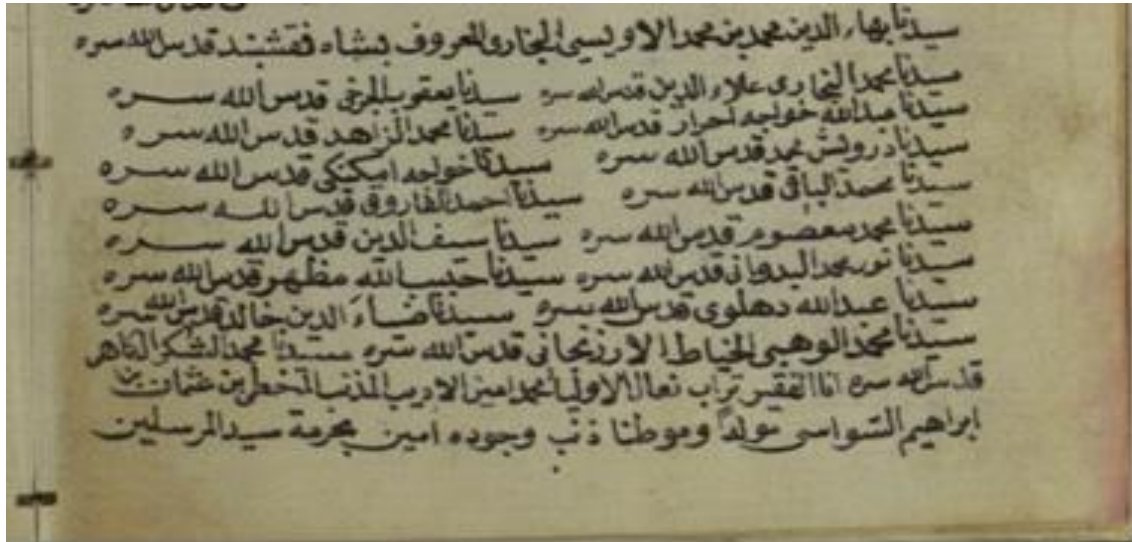 سيدنا بهاء الدين محمد بن محمد الاويسي البخاري المعروف بشاه نقشبند قدس الله سره
سيدنا محمد البخاري علاء الدين قدس الله سره سيدنا يعقوب الجرخي قدس الله سره
سيدنا عبدالله خواجه احرار قدس الله سره سيدنا محمد الزاهد قدس الله سره
سيدنا درويش محمد قدس الله سره سيدنا خواجه امكنكى قدس الله سره
سيدنا محمد الباقي قدس الله سره سيدنا احمد الفاروقي قدس الله سره
سيدنا محمد معصوم قدس الله سره سيدنا سيف الدين قدس الله سره
سيدنا نور محمد البدواني قدس الله سره سيدنا حبيب الله مظهر قدس الله سره
سيدنا عبدالله دهلوى قدس الله سره سيدنا ضياء الدين خالد قدس الله سره
سيدنا محمد الوهبى الخياط الارزنجاني قدس الله سره سيدنا محمد الشكر
قدس الله سره انا الفقير تراب نعال الاوليا محمد امين الاديب المذنب بن عثمان بن
ابراهيم السواسى تولدا وموطنا ذنب وجوده امين بحرمة سيد المرسلين